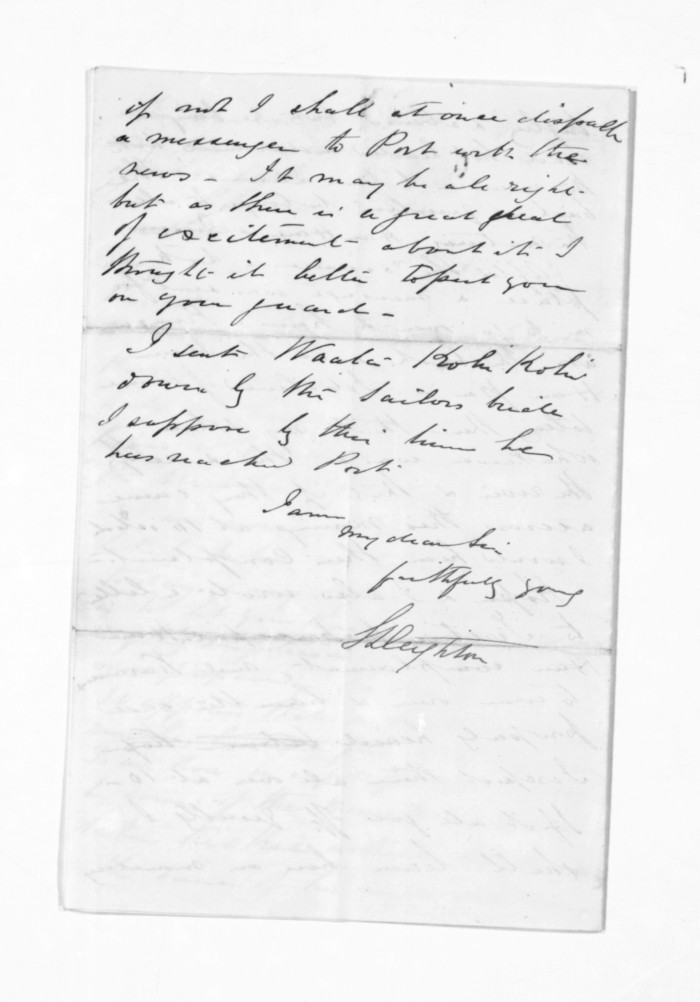 if not I shall at once dispatch
a messenger to Port with the
news - It may be all right -
but as there is a great great
of excitement about it I
thought it better to put you
on your guard -
I sent Waata Kohi Kohi
down by the Sailors bride
I suppose by this time he
has reached Port.
I am
my dear Sir
faithfully yours
S Deighton